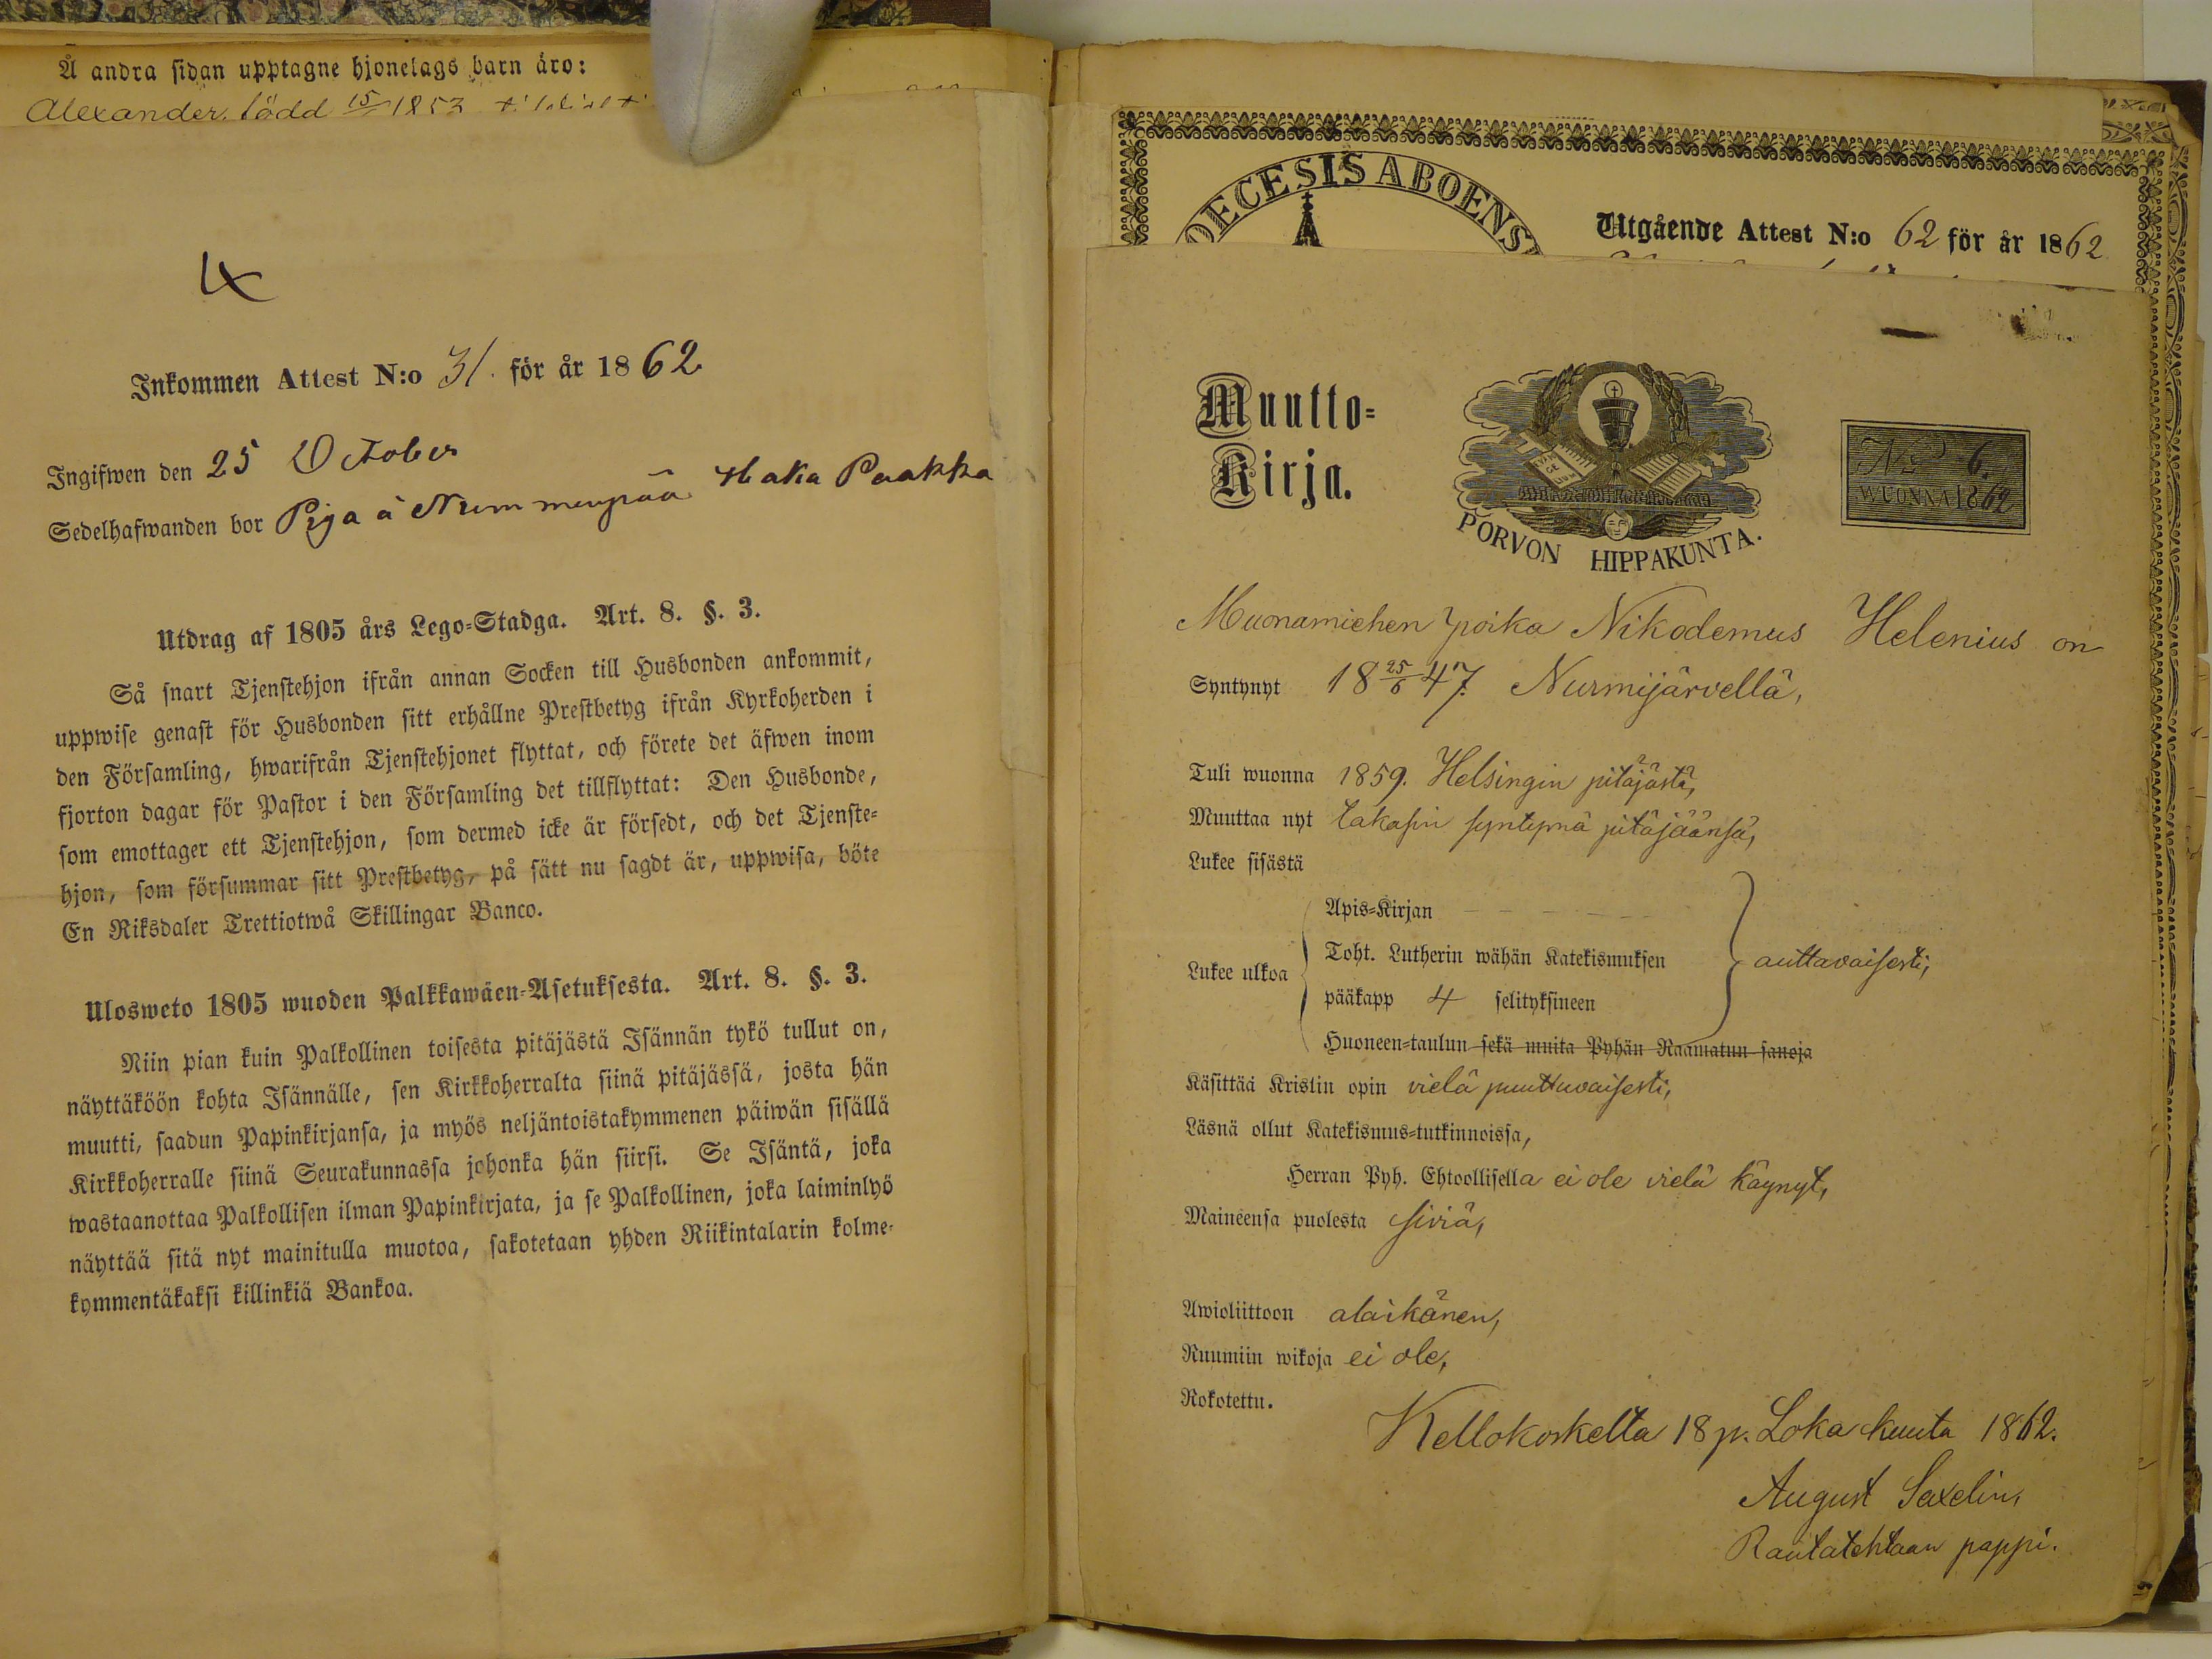 Å andra sidan upptagne hjonelags barn äro:
Alexander, född 15/ 1853
Inkommen Attest N:o 31. för år 1862.
Ingifwen den 25 October
Sedelhafwanden bor Piga å Nummenpää Haka Paakka
Utdrag af 1805 års Lego=Stadga. Art. 8. §. 3.
Så snart Tjenstehjon ifrån annan Socken till Husbonden ankommit,
uppwise genast för Husbonden sitt erhållne Prestbetyg ifrån Kyrkoherden i
den Församling, hwarifrån Tjenstehjonet flyttat, och förete det äfwen inom
fjorton dagar för Pastor i den Församling det tillflyttat: Den Husbonde,
som emottager ett Tjenstehjon, som dermed icke är försedt, och det Tjenste=
hjon, som försummar sitt Prestbetyg, på sätt nu sagdt är, uppwisa, böte
En Riksdaler Trettiotwå Skillingar Banco.
Ulosweto 1805 wuoden Palkkawäen=Asetuksesta. Art. 8. §. 3.
Niin pian kuin Palkollinen toisesta pitäjästä Isännän tykö tullut on,
näyttäköön kohta Isännälle, sen Kirkkoherralta siinä pitäjässä, josta hän
muutti, saadun Papinkirjansa, ja myös neljäntoistakymmenen päiwän sisällä
Kirkkoherralle siinä Seurakunnassa johonka hän siirsi. Se Isäntä, joka
wastaanottaa Palkollisen ilman Papinkirjata, ja se Palkollinen, joka laiminlyö
näyttää sitä nyt mainitulla muotoa, sakotetaan yhden Riikintalarin kolme=
kymmentäkaksi killinkiä Bankoa.
OECESIS ABOENS
Utgående Attest N:o 62 för år 1862
Muutto=
Kirja.
PORVON HIPPAKUNTA.
No 6.
WUONNA 1862
Muonamiehen poika Nikodemus Helenius on
Syntynyt 18 25/6 47. Nurmijärvellä,
Tuli wuonna 1859. Helsingin pitäjästä,
Muuttaa nyt takasin syntymä pitäjäänsä,
Lukee sisästä
Lukee ulkoa
Apis=Kirjan
Toht. Lutherin wähän Katekismuksen
pääkapp 4 selityksineen
Huoneen=taulun sekä muita Pyhän Raamatun sanoja
auttavaisesti,
Käsittää Kristin opin vielä puuttuvaisesti,
Läsnä ollut Katekismus=tutkinnoissa,
Herran Pyh. Ehtoollisella ei ole vielä käynyt,
Maineensa puolesta siviä,
Awioliittoon alaikänen,
Ruumiin wikoja ei ole,
Rokotettu.
Kellokoskelta 18 p. Loka kuuta 1862.
August Saxelin,
Rautatehtaan pappi.